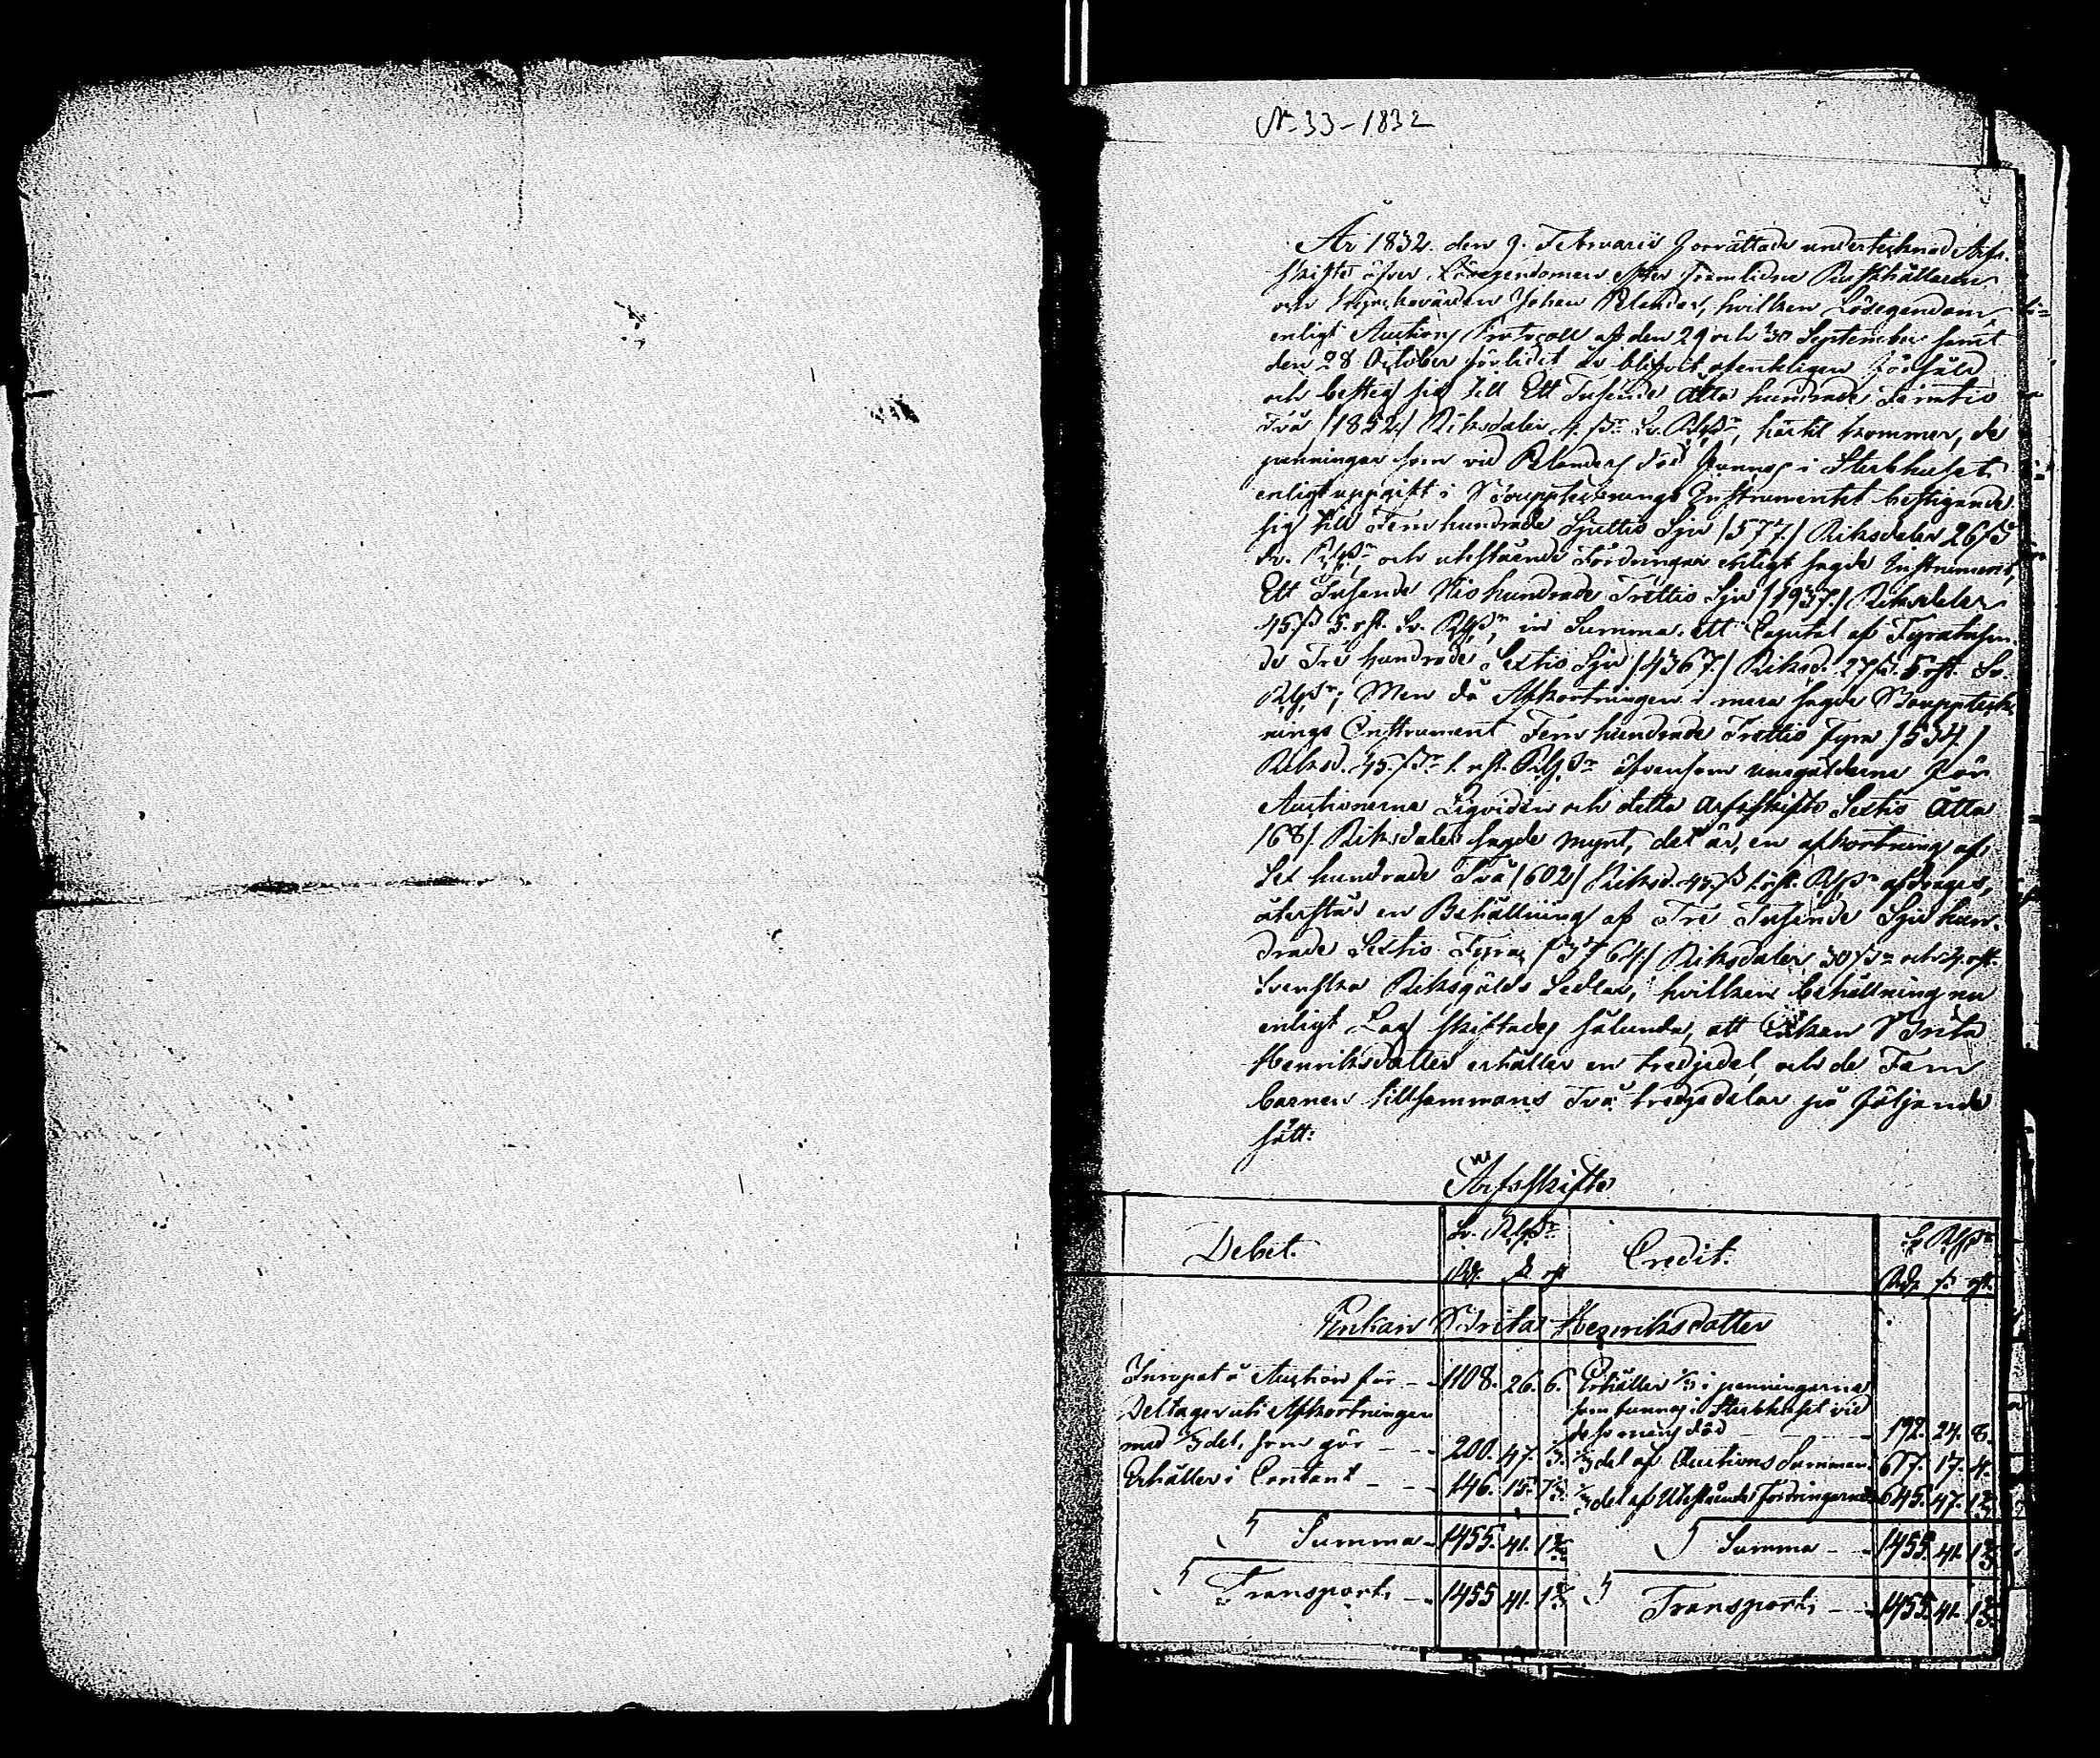 N. 33-1832
År 1832. den 9. Februarii förrättade undertecknad Arfs-
skifte öfver Lösegendomen efter framlidne Rusthållaren
och Johan Relander, hvilken Lösegendom
enligt Auctions Protocoll af den 29 och 30 September samt
den 28 October förlidit år blifvit offentligen försåld
och besteg sig till Ett Tusende Åtta hundrade Femtio
Två /1852/ Riksdaler 4. ßr Sv. Rgßr, härtil kommer, de
penningar som vid Relanders död funnos i Sterbhuset
enligt uppgift i Bouppteknings Instrumentet bestigande
sig till Femhundrade Sjuttio Sju /577./ Riksdaler 26 ß
Sv. Rgßr, och utestående Fordringar enligt sagde Instrument,
Ett Tusende Niohundrade Trettio Sju /1937./ Riksdaler
45 ß 5. rst. Sv. Rgßr, in Summa ett Capital af Fyratusen-
de Tre hundrade Sextio Sju /4367./ Riksd. 27 ß. 5 rst. Sv.
Rgßr; Men då Afkortningen i mera sagde Bouppteck-
nings Instrument Femhundrade Trettio Fyra /534./
Riksd. 45. ßr 1. rst. Rgßr äfvensom umgälderne för
Auctionerna Liqviden och detta arfsskifte Sextio Åtta
/68/. Riksdaler sagde mynt, det är, en afkortning af
Sex hundrade Två /602/ Riksd. 45. ß 1 rst. Rgßr afdrages,
återstår en Behållning af Tre Tusende Sju hun-
drade Sextio Fyra /3764/ Riksdaler 30 ßr och 4. rst.
Svenska Riksgälds Sedlar, hvilken behållning nu
enligt Lag skiftades sålunda, att Enkan Brita
Henriksdotter erhåller en tredjedel, och de Fem
barnen tillsammans Två tredjedelar på följande
sätt:
Arfsskifte
Debet. Sv. Rgßr Credit. Sv Rgßr
Rdr ß rst Rdr ß rst.
Enkan Brita Henriksdotter
Inropat å Auction för - - 1108. 26. 6. Erhåller 1/3 i penningarna
som funnos i Sterbhuset vid
Deltager uti Afkortningen
död - - 192. 24. 8.
med 1/3 del, som gör - - 200. 47. 1/3. 1/3 del af Auctions Summan 617. 17. 4.
Erhåller i Contant - - 146. 15. 7 1/3. 1/3 del af Utestående fordringarne 645. 47. 1 2/3
Summa - 1455. 41. 1 2/3 Summa - - 1455. 41. 1 2/3
Transport, - - 1455 41. 1 2/3 Transport, - - 1455. 41. 1 2/3